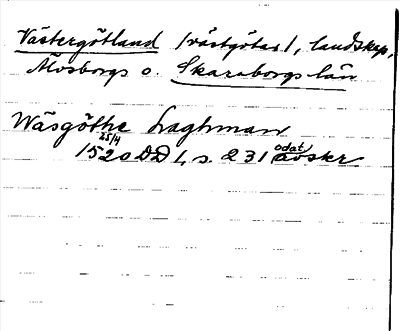 Västergötland /västgötar/, landskap,
Älvsborgs o. Skaraborgs län
Wäsgöthe Laghman
25/4 odat
1520 DD 1, s. 231 avskr